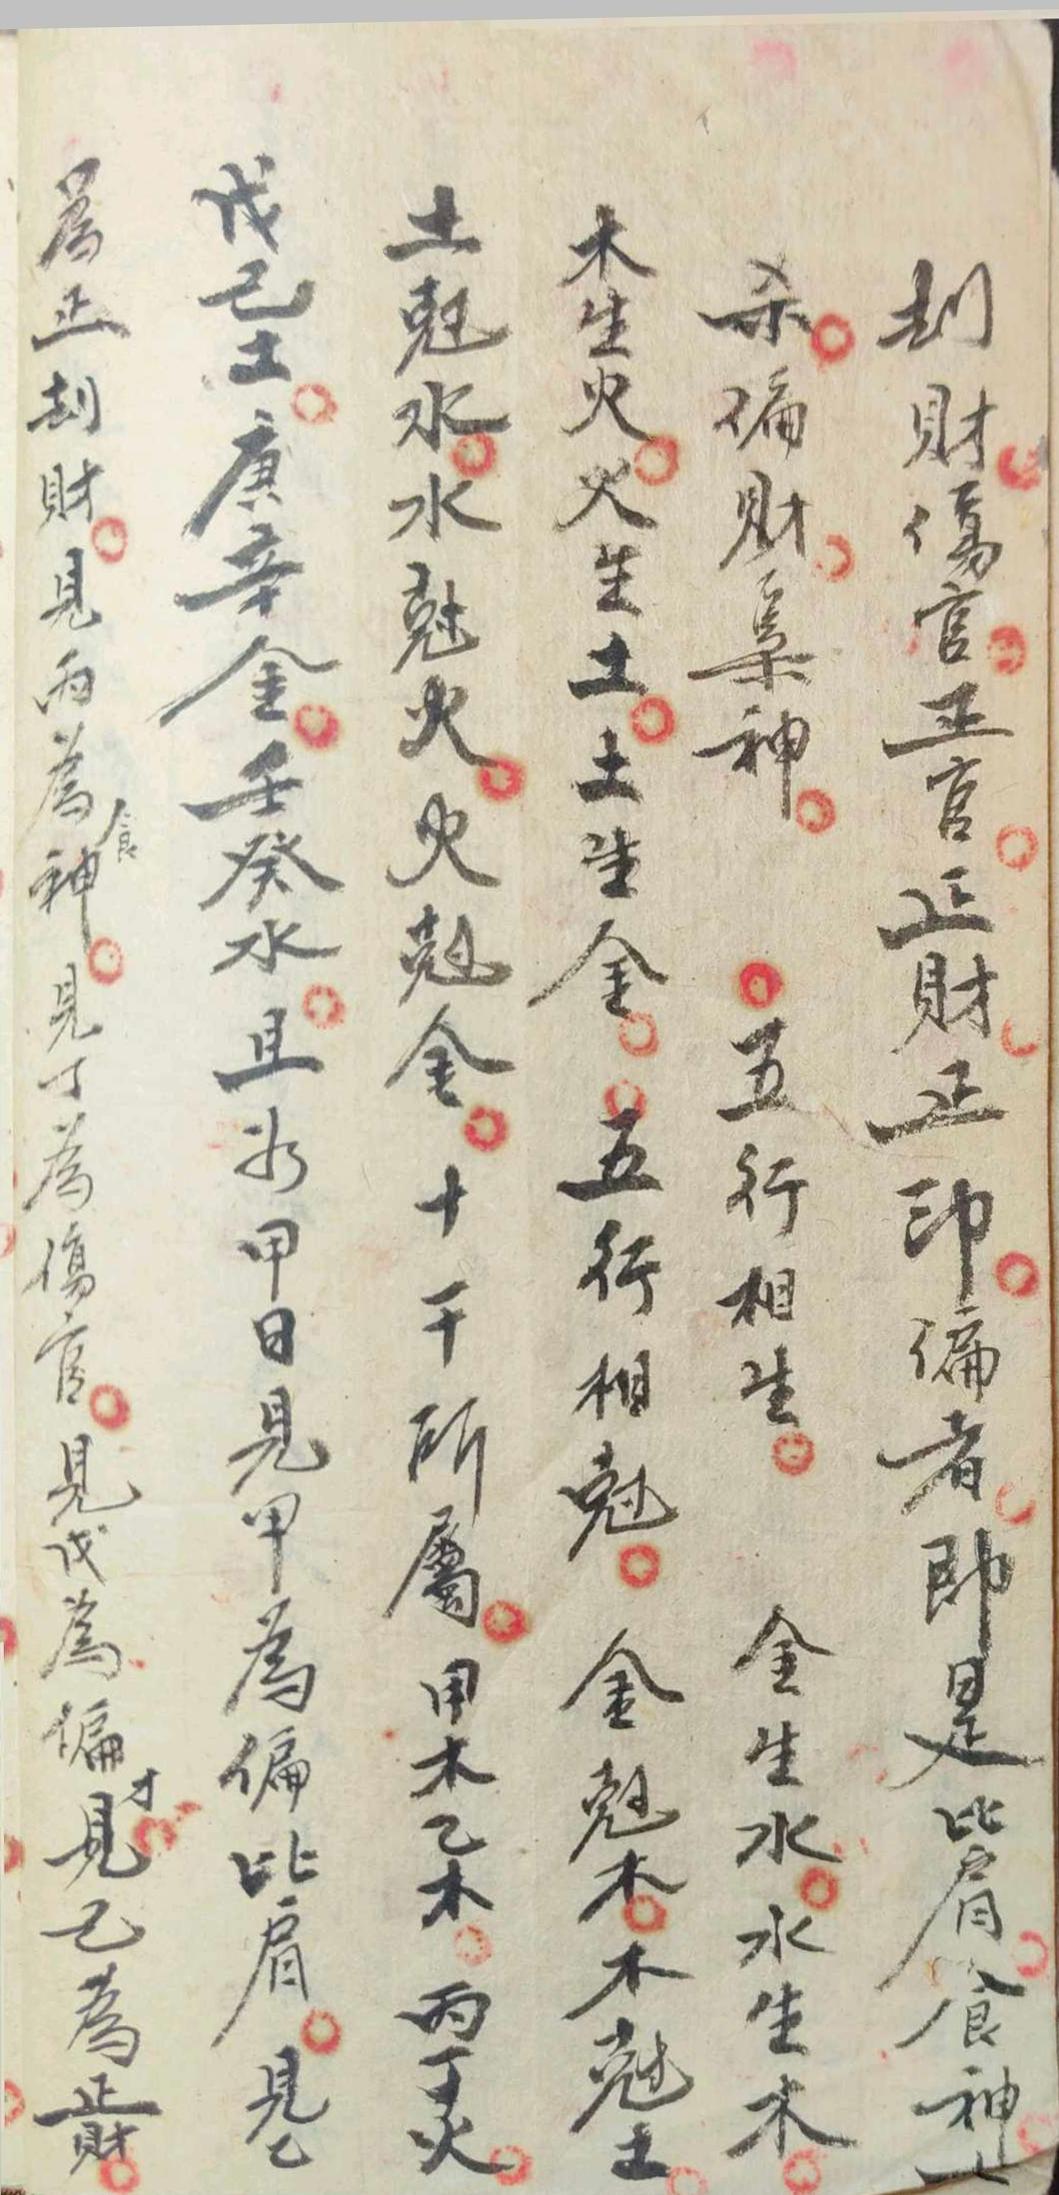 刦財傷官正官正財正印偏者即是比肩食神七
杀偏財梟神 五行相生 金生水水生木
木生火火生土土生金 五行相尅 金尅木木尅土
土尅水水尅火火尅金 十干所屬 甲木乙木 丙丁火
戊己土庚辛金壬癸水且如甲日見甲為偏比肩見乙
為正刦財見丙為食神見丁為傷官見戊為偏才見己為正財